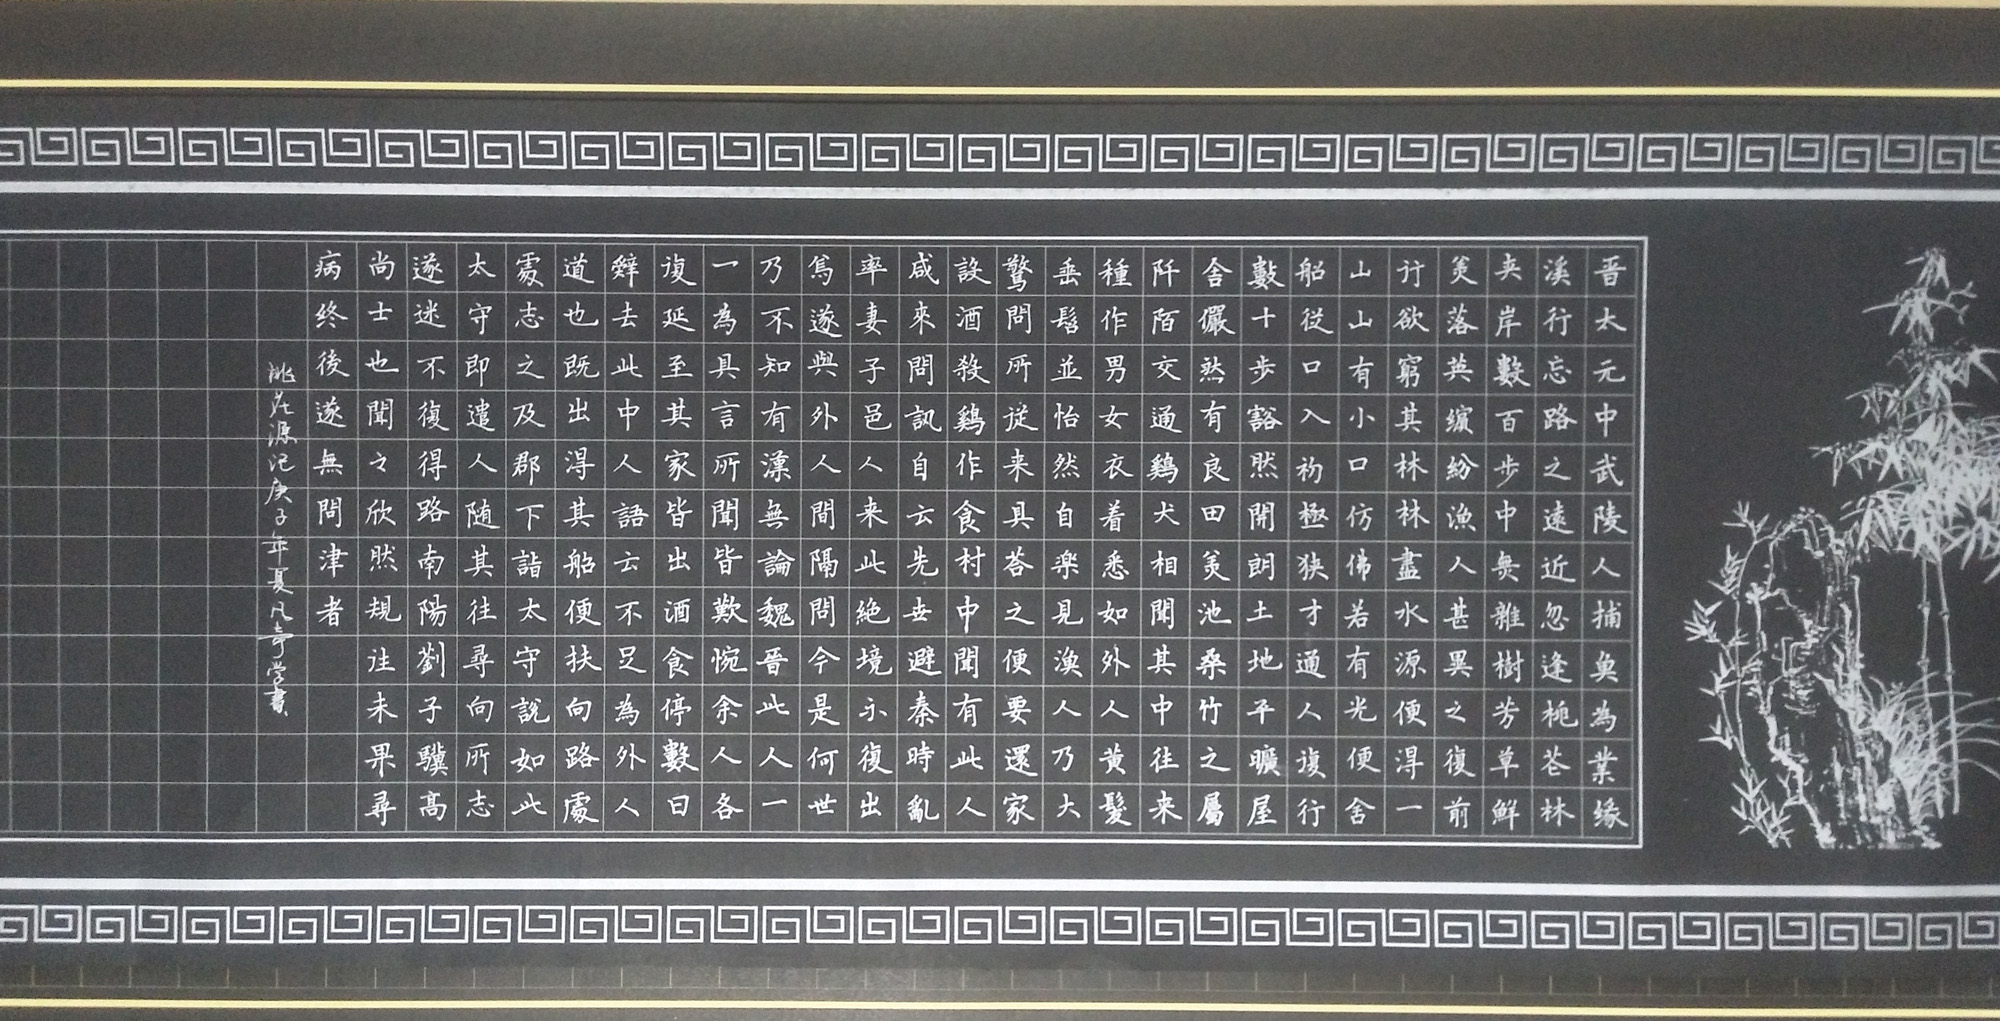 晋太元中武陵人捕魚為業缘
溪行忘路之遠近忽逢桃花林
夾岸數百步中無雜樹芳草鮮
羙落英繽紛漁人甚異之復前
行欲窮其林林盡水源便得一
山山有小口仿佛若有光便舍
船從口入初極狭才通人復行
數十步豁然開朗土地平曠屋
舍儼然有良田羙池桑竹之屬
阡陌交通鷄犬相聞其中往来
種作男女衣着悉如外人黄髮
垂髫並怡然自楽見漁人乃大
驚問所從来具荅之便要還家
設酒殺鷄作食村中聞有此人
咸來問訊自云先世避秦時亂
率妻子邑人来此絶境不復出
焉遂與外人間隔問今是何世
乃不知有漢無論魏晋此人一
一為具言所聞皆歎惋余人各
復延至其家皆出酒食停數日
辭去此中人語云不足為外人
道也既出得其船便扶向路處
處志之及郡下詣太守說如此
太守即遣人随其往尋向所志
遂迷不復得路南陽劉子驥高
尚士也聞之欣然規往未果尋
病终後遂無問津者
桃花源记庚子年夏凡奇学書